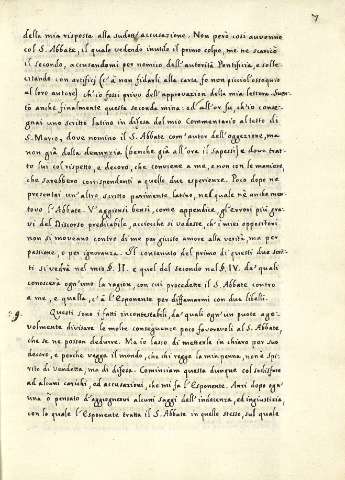 7
della mia risposta alla sudetta accusazione. Non però così avvenne
col S. Abbate, il quale vedendo inutile il primo colpo, me ne scaricò
il secondo, accusandomi per nemico dell'autorità Pontificia, e solle-
citando con artificj (c'à non fidarli alla carta, fe non picciol'ossequio
al loro autore) ch'io fossi privo dell'approvazion della mia lettera. Suen-
tò anche finalmente questa seconda mina: ed all'or fu, ch'io conse-
gnai uno scritto latino in difesa del mio Commentario al testo di
S. Marco, dove nomino il S. Abbate com'autor dell'oggezzione, ma
non già della denunzia (benche già all'ora il sapessi) e dove trat-
to lui col rispetto, e decoro, che conviene a me, e non con le maniere,
che sarebbero corrispondenti a quelle due esperienze. Poco dopo ne
presentai un'altro scritto parimente latino, nel quale n'è anche men-
tovo l'Abbate. V'aggiunsi bensì, come appendice, gl'errori più gra-
vi del Discorso predicabile, accioche si vedesse, ch'i miei oppositori
non si moveano contro di me per giusto amore alla verità, ma per
passione, o per ignoranza. Il contenuto del primo di questi due scrit-
ti si vedrà nel mio §. II. e quel del secondo nel §. IV. da' quali
conoscerà ogn'uno la ragion, con cui procedette il S. Abbate contro
a me, e quella, c'à l'Esponente per diffamarmi con due libelli.
9. Questi sono i fatti incontestabili, da' quali ogn'un puote age-
volmente divisare le molte conseguenze poco favorevoli al S. Abbate,
che se ne posson dedurre. Ma io lascio di metterle in chiaro per suo
decoro, e perche vegga il mondo, che chi regge la mia penna, non è spi-
rito di vendetta, ma di difesa. Cominciam questa dunque col soddisfare
ad alcuni carichi, ed accusazioni, che mi fa l'Esponente. Anzi dopo ogn'
una ò pensato d'aggiognervi alcuni saggi dell'indecenza, ed ingiustizia,
con lo quale l'Esponente tratta il S. Abbate in quelle stesse, sul quale